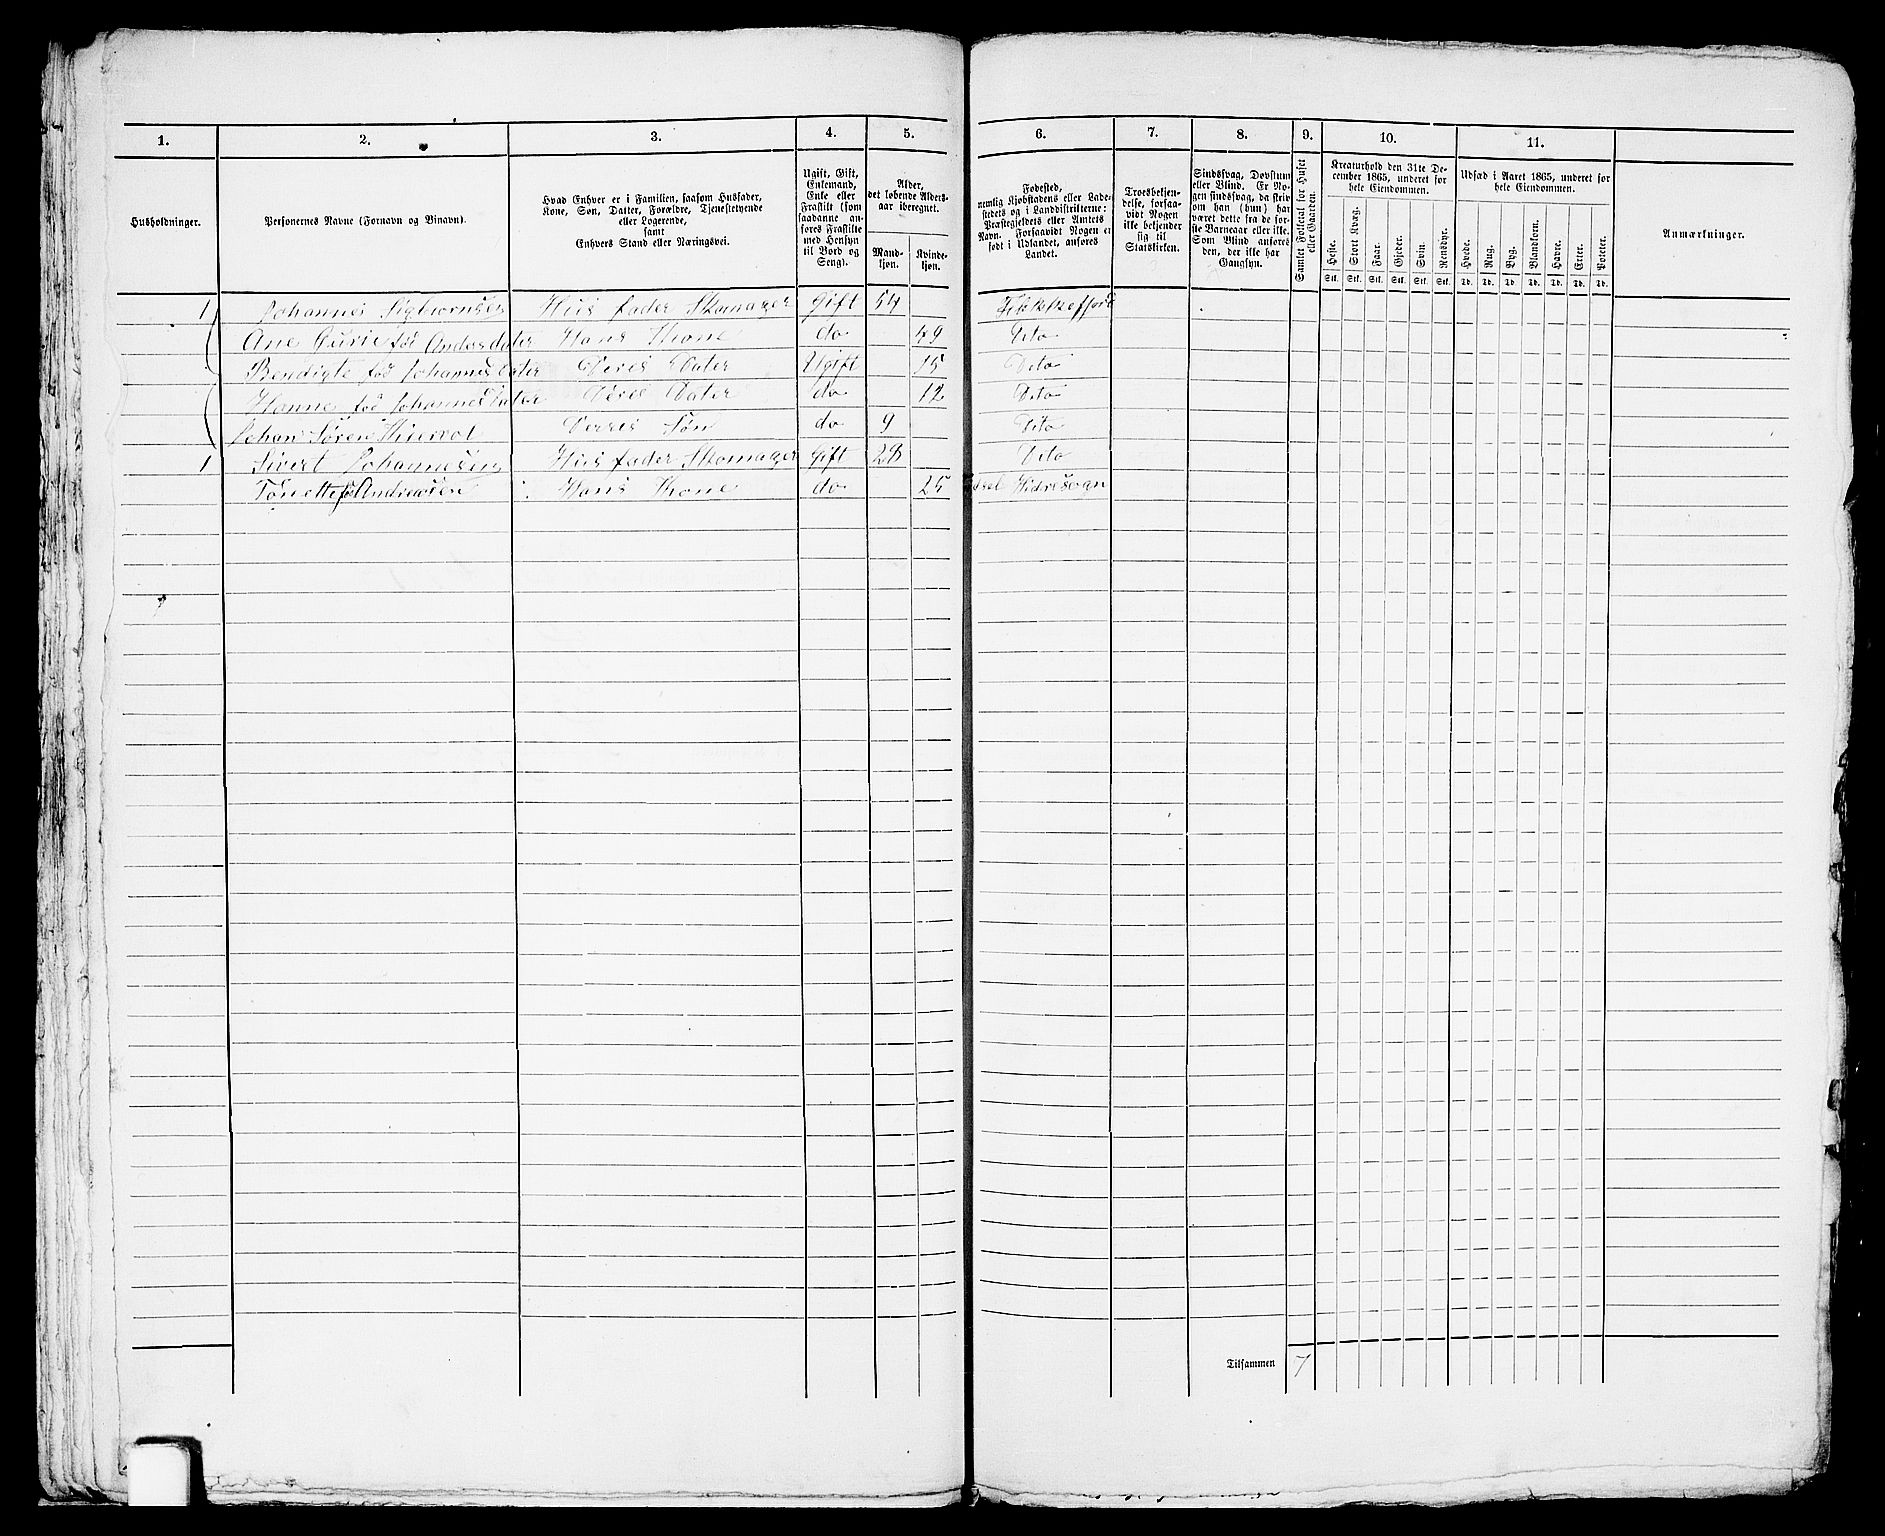 1. 2. 3. 4. 5. 6. 7. 8. 9. 10. 11.
Husholdninger.
Personernes Navne (Fornavn og Binavn).
Hvad Enhver er i Familien, saasom Husfader,
Kone, Søn, Datter, Forældre, Tjenestetyende
eller Logerende,
samt
Enhvers Stand eller Næringsvei.
Ugift, Gift,
Enkemand,
Enke eller
Fraskilt (som
saadanne an-
føres Fraskilte
med Hensyn
til Bord og
Seng).
Alder,
det løbende Alders-
aar iberegnet.
Mand-
kjøn.
Kvinde-
kjøn.
Fødested,
nemlig Kjøbstadens eller Lade-
stedets og i Landdistrikterne:
Præstegjeldets eller Amtets
Navn. Forsaavidt Nogen er
født i Udlandet, anføres
Landet.
Troesbekjen-
delse, forsaa-
vidt Nogen
ikke bekjender
sig til
Statskirken.
Sindssvag, Døvstum
eller Blind. Er No-
gen sindssvag, da skriv
om han (hun) har
været dette fra de før-
ste Barneaar eller ikke.
Som Blind anføres
den, der ikke har
Gangsyn.
Samlet Folketal for Huset
eller Gaarden.
Kreaturhold den 31te De-
cember 1865, underet for
hele Eiendommen.
Heste. Stort Kvæg. Faar. Gjeder. Svin. Rensdyr.
Stk. Stk. Stk. Stk. Stk. Stk.
Udsæd i Aaret 1865, underet for
hele Eiendommen.
Hvede. Rug. Byg. Blandkorn. Havre. Erter. Poteter.
Td. Td. Td. Td. Td. Td. Td.
Anmærkninger.
1 Johannes Sigbiornsen Hus fader Skomager Gift 54
Ane Gurie fød Andersdater Hans Kone do 49 Dito
Bendigte fød Johannesdater Deres Dater Ugift 15 Dito
Hanne fød Johannesdater Deres Dater do 12 Dito
Johan Søren Deres Søn do 9 Dito
1 Sivert Johannesen Hus fader Skomager Gift 28 Dito
Tonette fø Andreasen Hans Kone do 25
Tilsammen 7